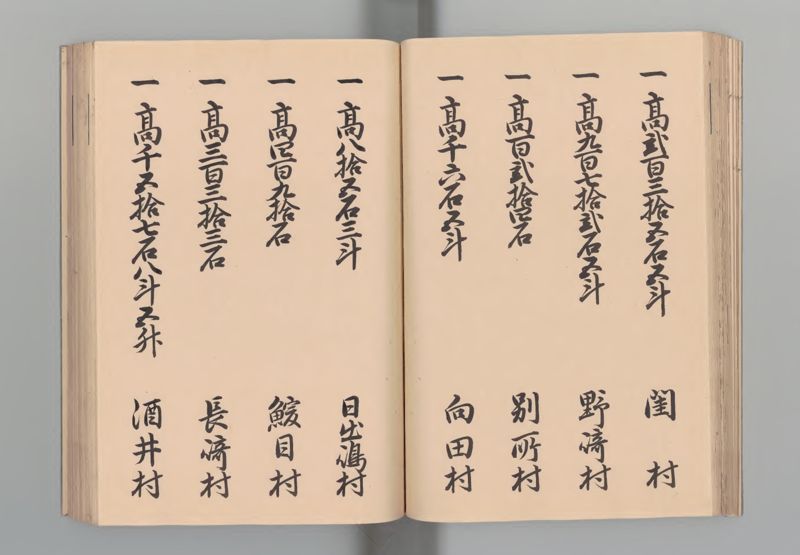 一 髙弐百三拾五石五斗 閨村
一 髙九百七拾弐石五斗 野﨑村
一 髙百弐拾四石 別所村
一 髙千六石五斗 向田村
一 髙八拾五石三斗 日出嶋村
一 髙四百九拾石 鰀目村
一 髙三百三拾三石 長﨑村
一 髙千五拾七石八斗五升 酒井村